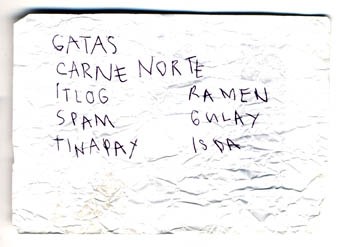 GATAS
CARNE NORTE
ITLOG RAMEN
SPAM GULAY
TINAPAY ISDA